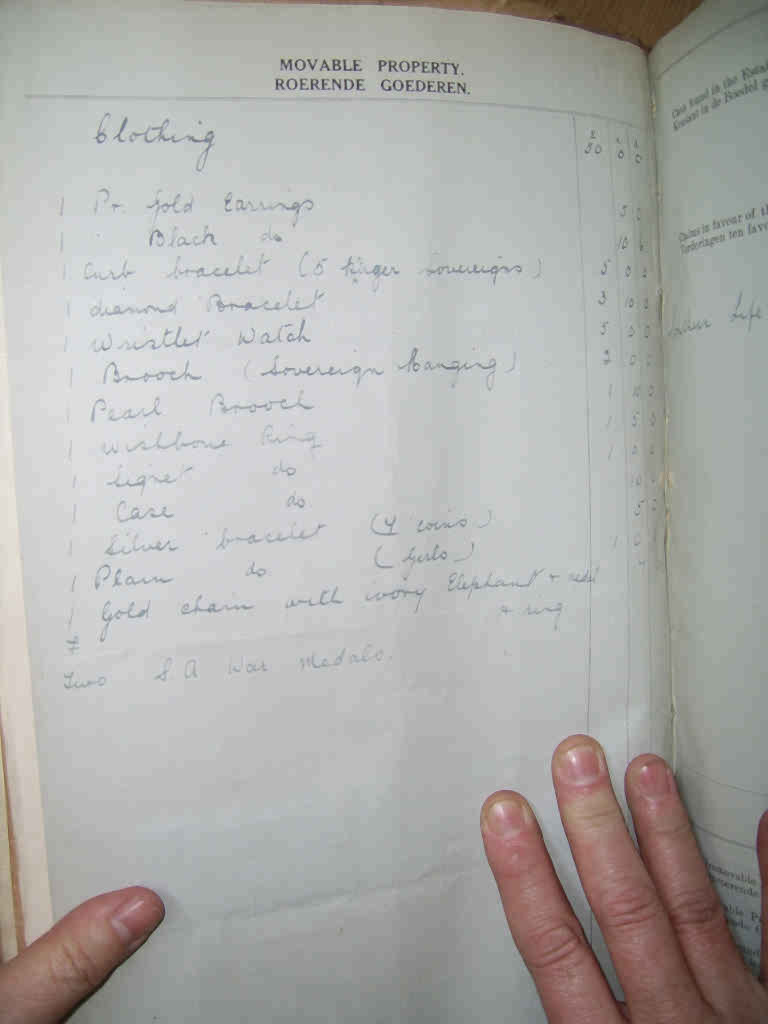 MOVABLE PROPERTY.
ROERENDE GOEDEREN.
Clothing 50 0 0
1 Pr. Gold Earrings 5 0
1 Black do 10 6
1 Curb bracelet (5 Kruger Sovereigns) 5 0 0
1 diamond Bracelet 3 10 0
1 Wristlet Watch 5 0 0
1 Brooch (Sovereign hanging) 2 0 0
1 Pearl Brooch 1 10 0
1 Wishbone Ring 1 5 0
1 Signet do 1 0 0
1 Case do 10 0
1 Silver bracelet (4 coins) 5 0
1 Plain do (Girls)
1 Gold chain with ivory Elephant +
+ ring
Two S.A War Medals.
Cash found in the
Kontant in de Boedel
Claims in favour of
Vorderingen ten
Life